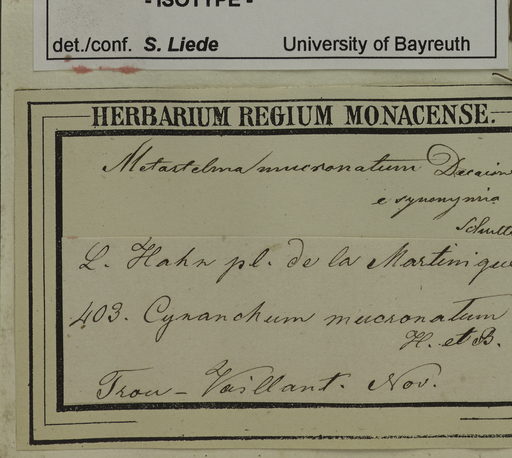 - ISOTYPE -
det./conf. S. Liede University of Bayreuth
HERBARIUM REGIUM MONACENSE.
Metastelma mucronatum Decaisn
e synonymia
L. Hahn pl. de la Martinique
403. Cynanchum mucronatum
H. et B.
Trou - Vaillant. Nov.